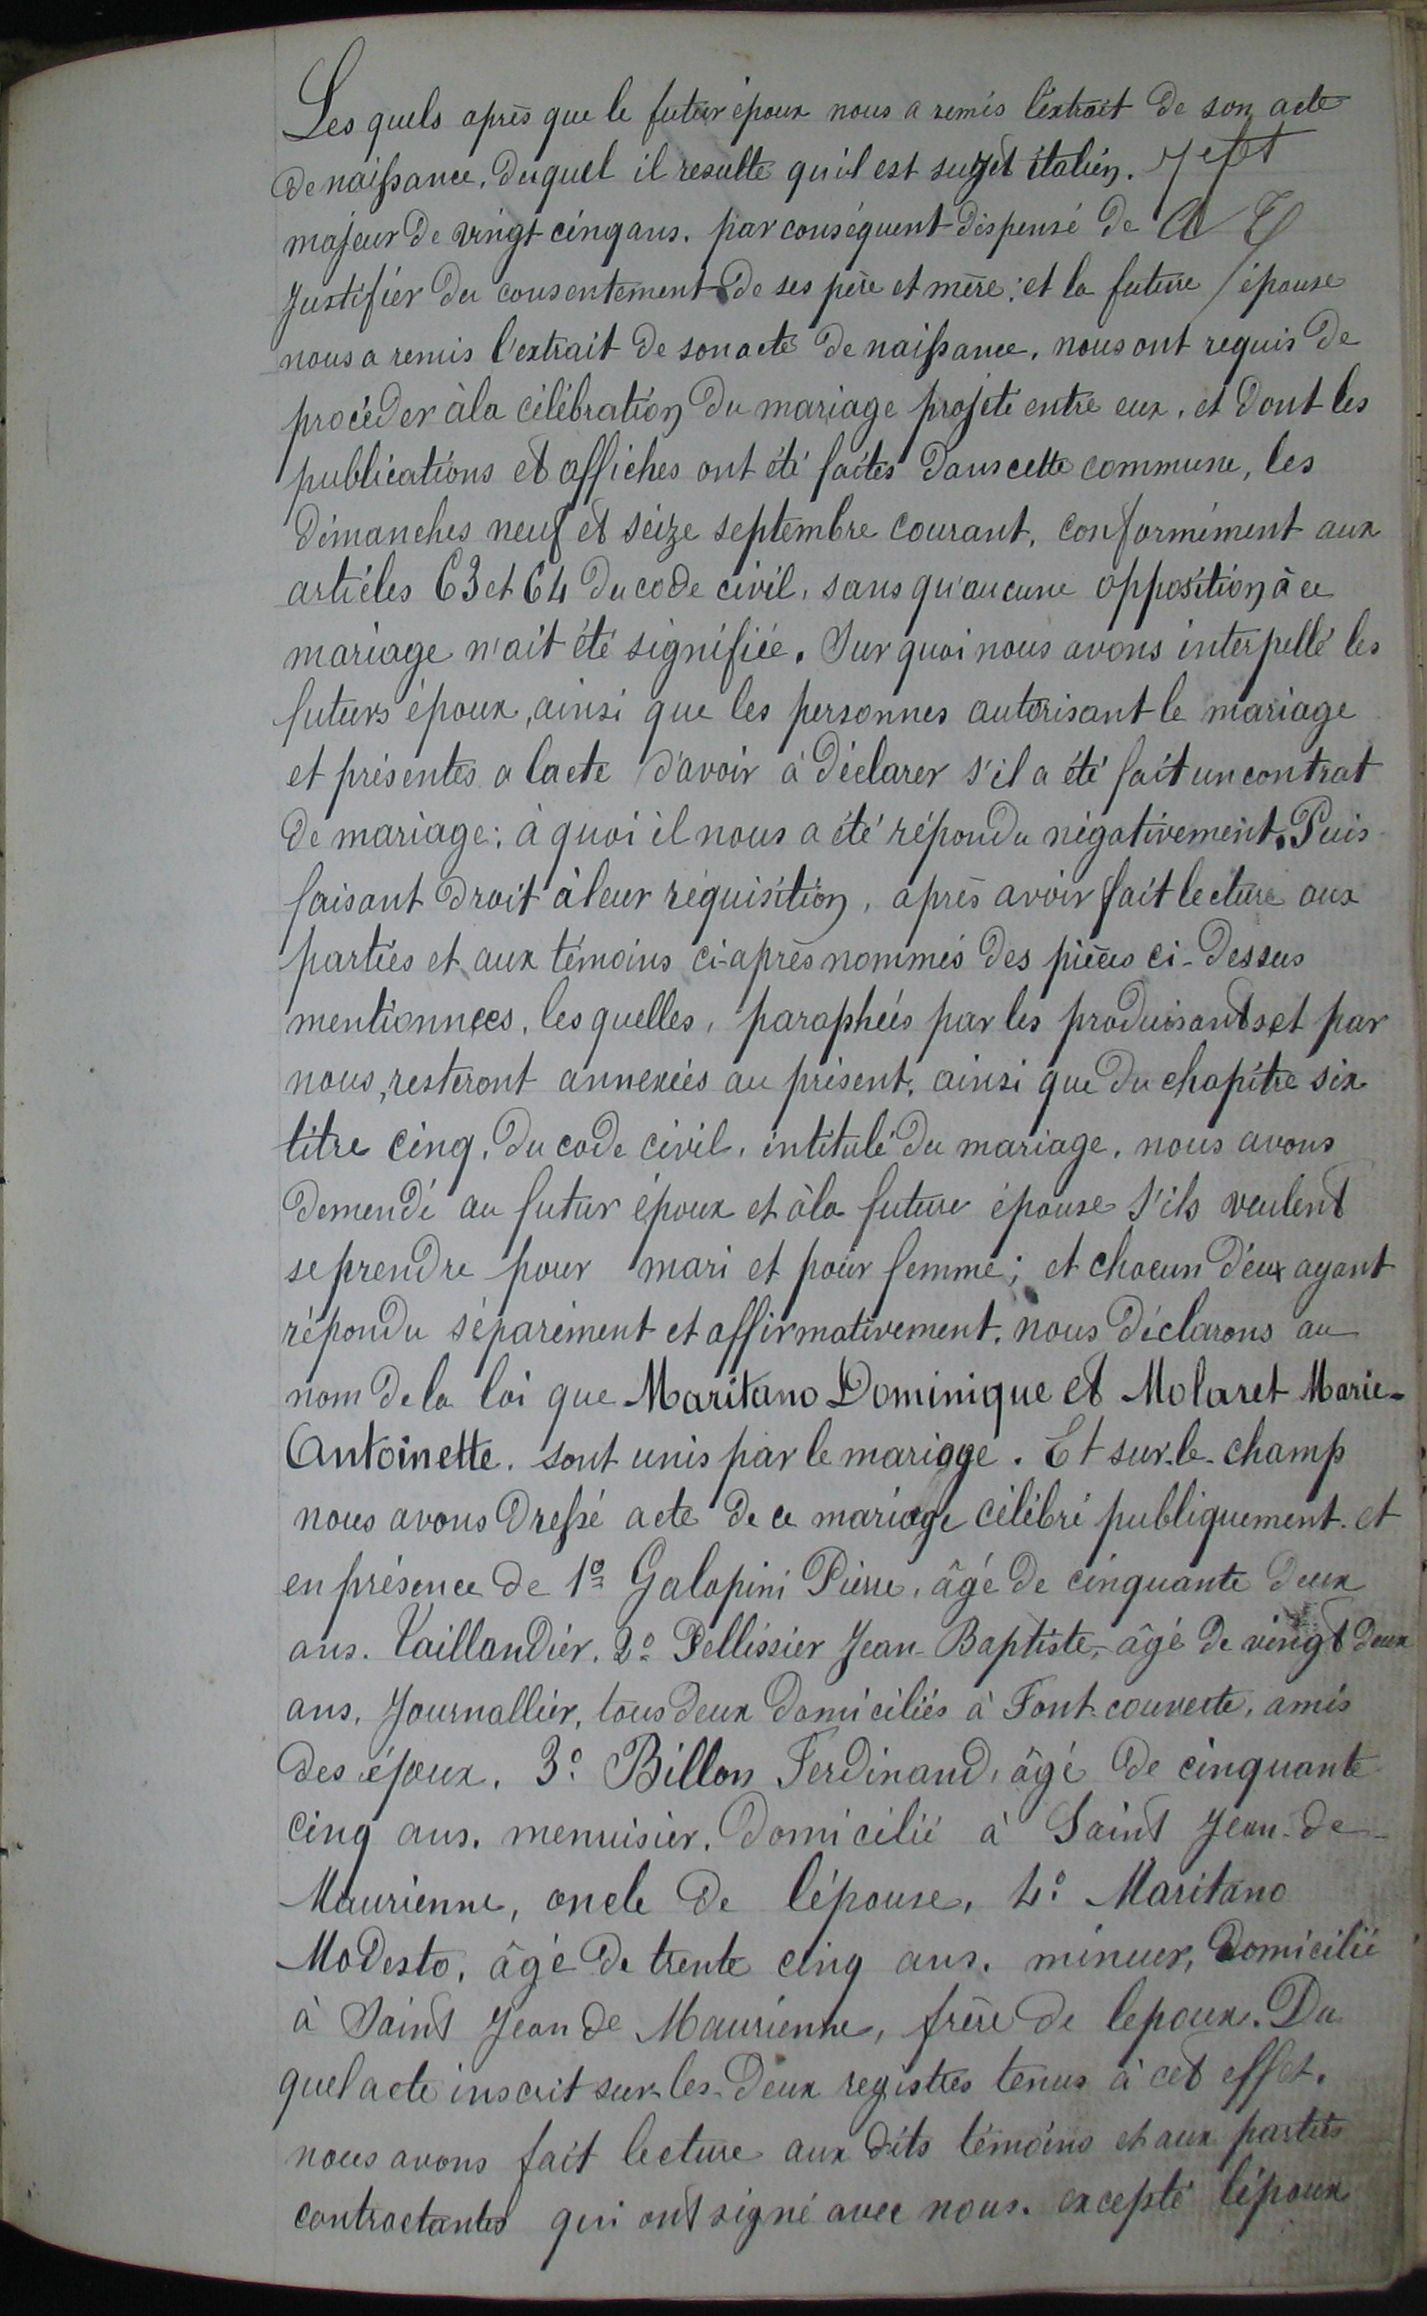 Les quels après que le futur époux nous a remis l'extrait de son acte
de naissance, duquel il resulte qu'il est sujet italien. et
majeur de vingt cinq ans, par conséquent dispensé de
justifier du consentement de ses père et mère; et la future épouse
nous a remis l'extrait de son acte de naissance, nous ont requis de
procéder à la célébration du mariage projeté entre eux, et dont les
publications et affiches ont été faites dans cette commune, les
dimanches neuf et seize septembre courant, conformément aux
articles 63 et 64 du code civil, sans qu'aucune opposition à ce
mariage n'ait été signifiée. Sur quoi nous avons interpellé les
futurs époux, ainsi que les personnes autorisant le mariage
et présentes a lacte d'avoir à déclarer s'il a été fait un contrat
de mariage; à quoi il nous a été répondu négativement. Puis
faisant droit à leur réquisition, après avoir fait lecture aux
parties et aux témoins ci-après nommés des pièces ci-dessus
mentionnées, les quelles, paraphées par les produisants et par
nous, resteront annexées au présent, ainsi que du chapitre six
titre cinq, du code civil, intitulé du mariage, nous avons
demendé au futur époux et à la future épouse s'ils veulent
se prendre pour mari et pour femme; et chacun d'eux ayant
répondu séparément et affirmativement, nous déclarons au
nom de la loi que Maritano Dominique et Molaret Marie-
Antoinette. sont unis par le mariage. Et sur-le-champ
nous avons dressé acte de ce mariage célébré publiquement et
en présence de 1º Galopini Pierre, âgé de cinquante deux
ans. Taillandier. 2º Pellissier Jean-Baptiste, âgé de vingt deux
ans, Journallier, tous deux domiciliés à Fontcouverte, amis
des époux. 3º Billon Ferdinand, âgé de cinquante
cinq ans. menuisier. Domicilié à Saint Jean-de-
Maurienne, oncle de l'épouse, 4º Maritano
Modesto, âgé de trente cinq ans. mineur, Domicilié
à Saint Jean de Maurienne, frère de lepoux. Du
quel acte inscrit sur les deux registres tenus à cet effet.
nous avons fait lecture aux dits témoins et aux parties
contractantes qui ont signé avec nous. excepté l'époux